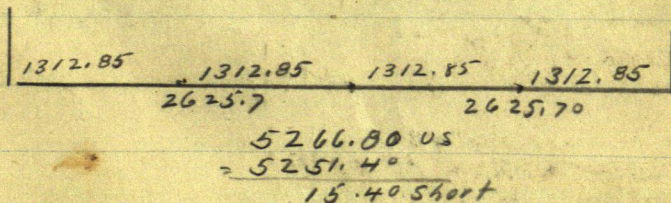 1312.85 1312.85 1312.85 1312.85
2625.7 2625.70
5266.80 US
= 5251.40
15.40 Short